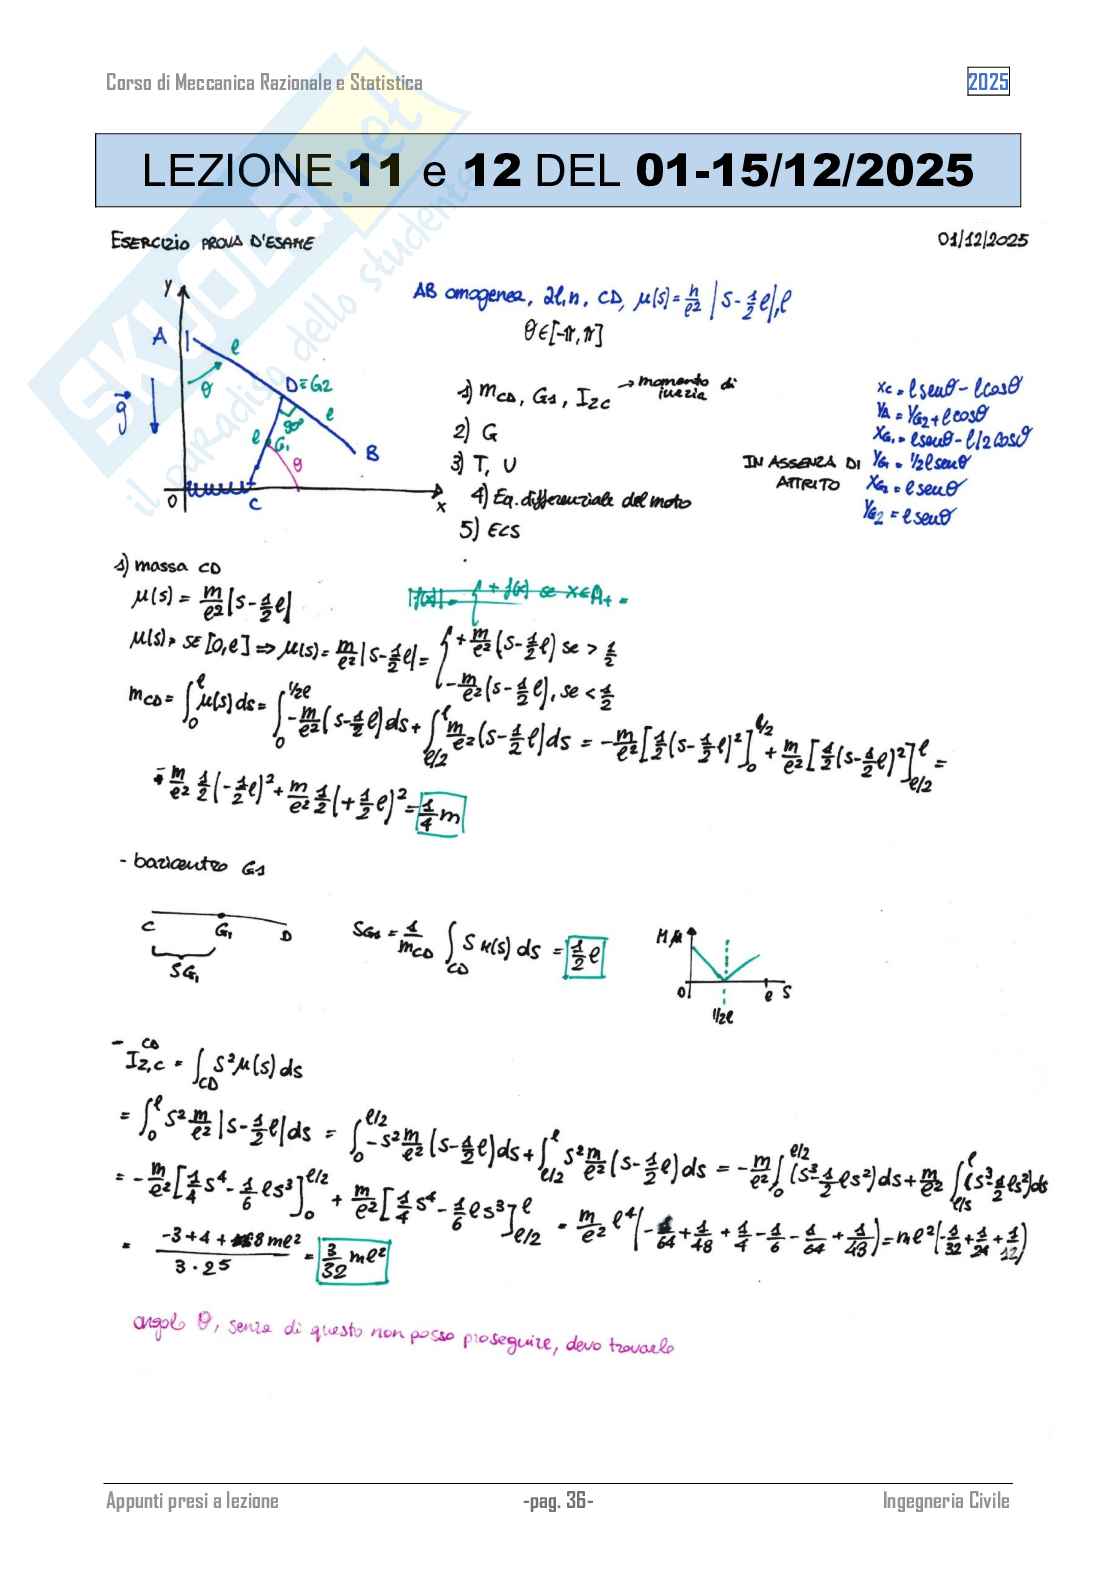 Corso di Meccanica Razionale e Statistica 2025
LEZIONE 11 e 12 DEL 01-15/12/2025
ESERCIZIO PROVA D'ESAME 01/12/2025
AB omogenea, 2l, m, CD, μ(s) = m/l² |s - 1/2 l|, l
θ∈[-π, π]
y
A
l
θ
D≡G2
l
90°
l
G1
θ
B
g
O
C
x
1) mCD, G1, IZC → momento di inerzia
2) G
3) T, U
4) Eq. differenziale del moto
5) ECS
IN ASSENZA DI ATTRITO
xC = l senθ - l cosθ
yA = yG2 + l cosθ
xG1 = l senθ - l/2 cosθ
yG1 = 1/2 l senθ
xG2 = l senθ
yG2 = l senθ
1) massa CD
μ(s) = m/l² |s - 1/2 l|
|f(x)| = { + f(x) se x∈A+
μ(s), s∈[0,l] ⇒ μ(s) = m/l² |s - 1/2 l| = { + m/l² (s - 1/2 l) se > 1/2
- m/l² (s - 1/2 l), se < 1/2
mCD = ∫₀^l μ(s) ds = ∫₀^1/2l - m/l² (s - 1/2 l) ds + ∫l/2^l m/l² (s - 1/2 l) ds = - m/l² [1/2 (s - 1/2 l)²]₀^l/2 + m/l² [1/2 (s - 1/2 l)²]l/2^l =
- m/l² 1/2 (- 1/2 l)² + m/l² 1/2 (+ 1/2 l)² = 1/4 m
- baricentro G1
C G1 D
SG1
SG1 = 1/mCD ∫CD s μ(s) ds = 1/2 l
μ
O 1/2 l l s
- IZ,C^CD = ∫CD s² μ(s) ds
= ∫₀^l s² m/l² |s - 1/2 l| ds = ∫₀^l/2 - s² m/l² (s - 1/2 l) ds + ∫l/2^l s² m/l² (s - 1/2 l) ds = - m/l² ∫₀^l/2 (s³ - 1/2 l s²) ds + m/l² ∫l/s^l (s³ - 1/2 l s²) ds
= - m/l² [1/4 s⁴ - 1/6 l s³]₀^l/2 + m/l² [1/4 s⁴ - 1/6 l s³]l/2^l = m/l² l⁴ (- 1/64 + 1/48 + 1/4 - 1/6 - 1/64 + 1/48) = ml² (- 1/32 + 1/24 + 1/12)
= -3+4+8 ml² / 3·2⁵ = 3/32 ml²
angolo θ, senza di questo non posso proseguire, devo trovarlo
Appunti presi a lezione -pag. 36- Ingegneria Civile
SKUOLA.net
il paradiso dello studente